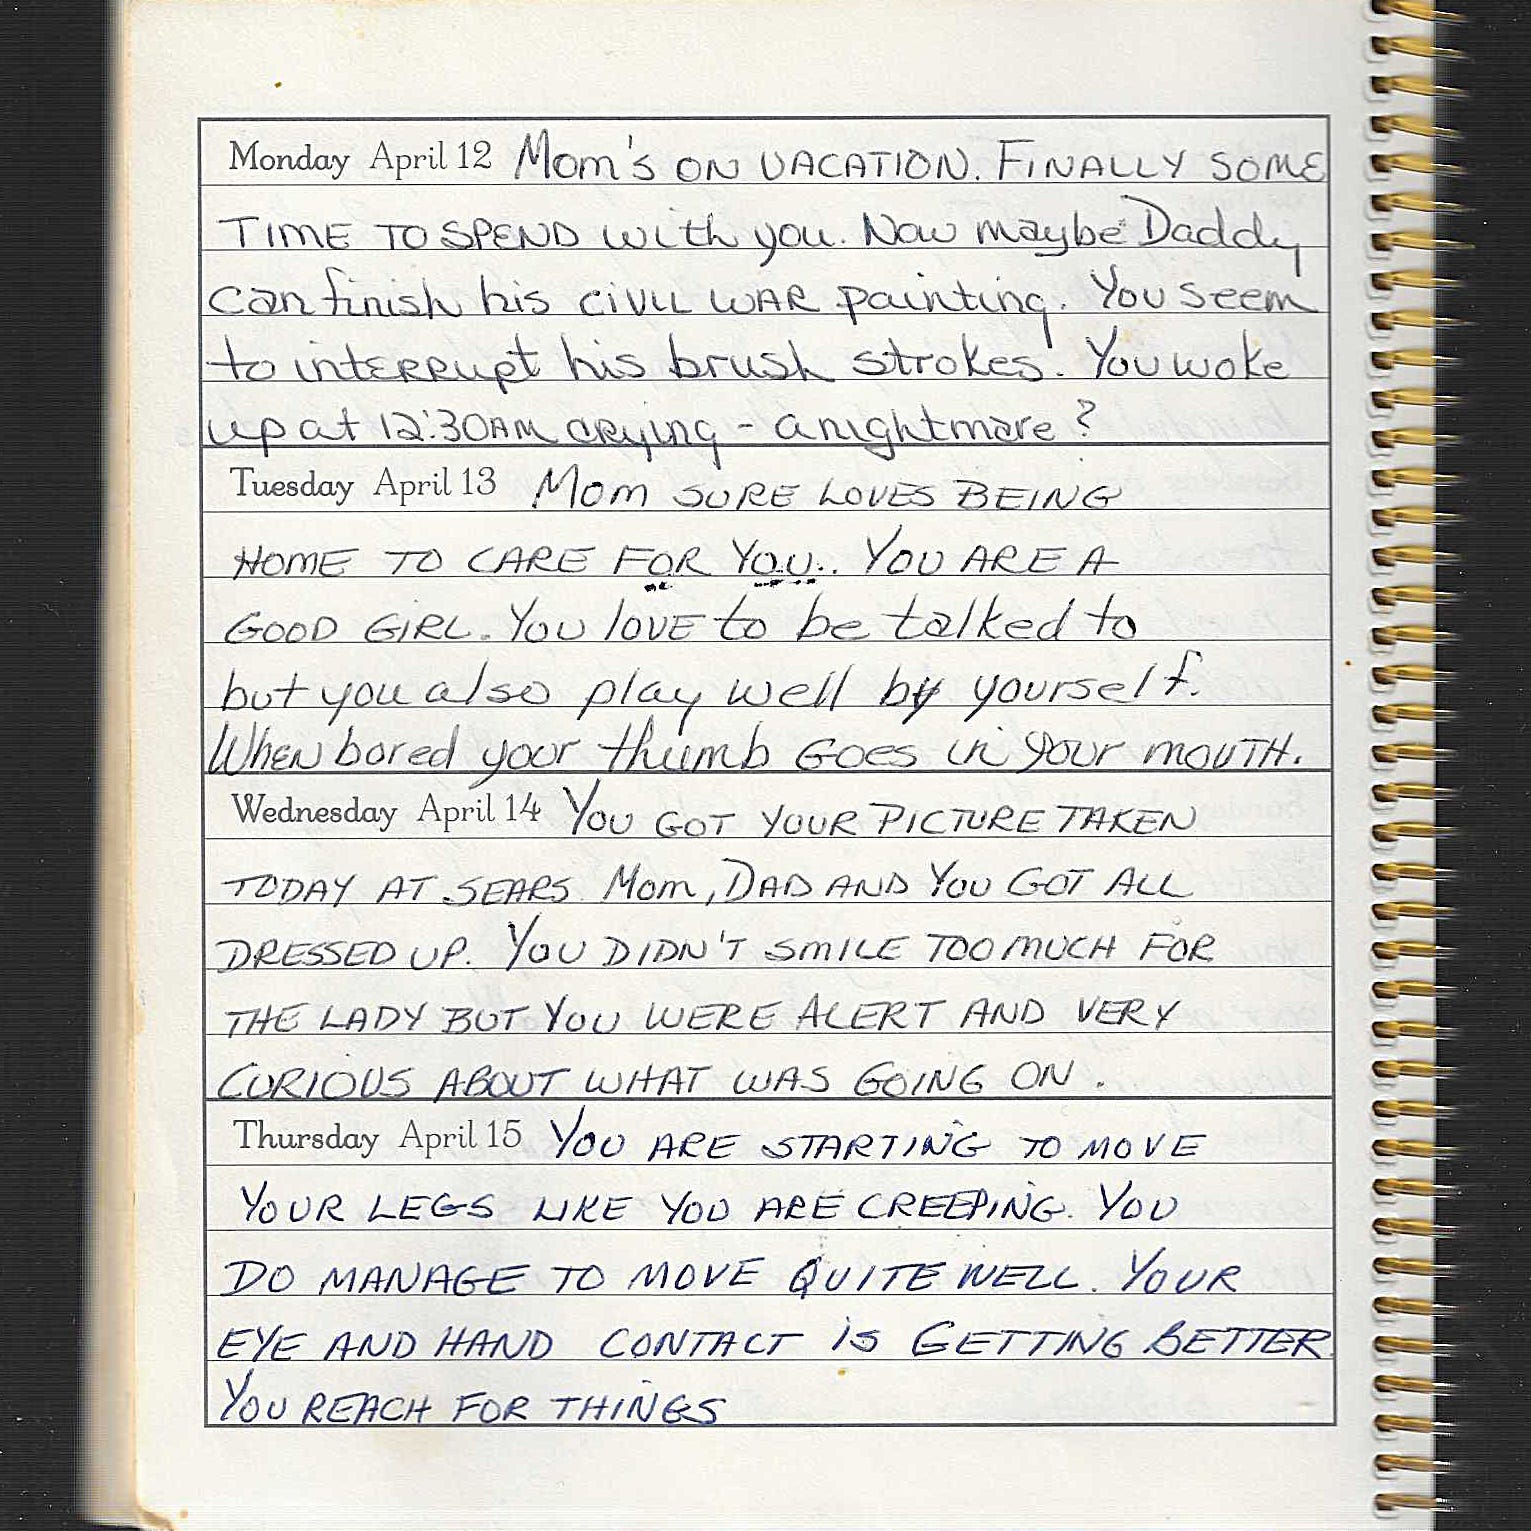 Monday April 12 Mom's ON VACATION. FINALLY SOME
TIME TO SPEND with you. Now maybe Daddy
can finish his CIVIL WAR painting. You seem
to interrupt his brush strokes. You woke
up at 12:30AM crying - a nightmare?
Tuesday April 13 Mom SURE LOVES BEING
HOME TO CARE FOR YOU.. YOU ARE A
GOOD GIRL. YOU lOVE to be talked to
but you also play well by yourself.
When bored your thumb Goes in your MOUTH.
Wednesday April 14 YOU GOT YOUR PICTURE TAKEN
TODAY AT SEARS. Mom, DAD AND YOU GOT ALL
DRESSED UP. YOU DIDN'T SMILE TOO MUCH FOR
THE LADY BUT YOU WERE ALERT AND VERY
CURIOUS ABOUT WHAT WAS GOING ON.
Thursday April 15 YOU ARE STARTING TO MOVE
YOUR LEGS LIKE YOU ARE CREEPING. YOU
DO MANAGE TO MOVE QUITE WELL. YOUR
EYE AND HAND CONTACT is GETTING BETTER.
YOU REACH FOR THINGS